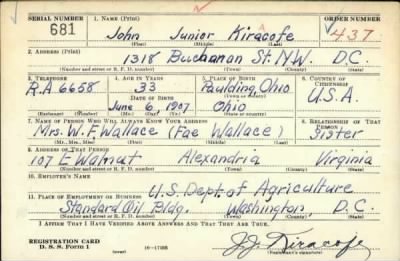 SERIAL NUMBER 1. NAME (Print) ORDER NUMBER
681 John Junior Kiracofe 437
(First) (Middle) (Last)
2. ADDRESS (Print)
1318 Buchanan St. N.W. D.C.
(Number and street or R. F. D. number) (Town) (County) (State)
3. TELEPHONE 4. AGE IN YEARS 5. PLACE OF BIRTH 6. COUNTRY OF CITIZENSHIP
R.A 6658 33 Paulding, Ohio
DATE OF BIRTH (Town or county) U.S.A.
June 6, 1907 Ohio
(Exchange) (Number) (Mo.) (Day) (Yr.) (State or country)
7. NAME OF PERSON WHO WILL ALWAYS KNOW YOUR ADDRESS 8. RELATIONSHIP OF THAT PERSON
Mrs. W. F. Wallace (Fae Wallace) Sister
(Mr., Mrs., Miss) (First) (Middle) (Last)
9. ADDRESS OF THAT PERSON
107 E Walnut Alexandria Virginia
(Number and street or R. F. D. number) (Town) (County) (State)
10. EMPLOYER'S NAME
U.S. Dept. of Agriculture
11. PLACE OF EMPLOYMENT OR BUSINESS
Standard Oil Bldg. Washington, D.C.
(Number and street or R. F. D. number) (Town) (County) (State)
I AFFIRM THAT I HAVE VERIFIED ABOVE ANSWERS AND THAT THEY ARE TRUE.
REGISTRATION CARD
D. S. S. Form 1 (over) 16-17105 J.J. Kiracofe
(Registrant's signature)